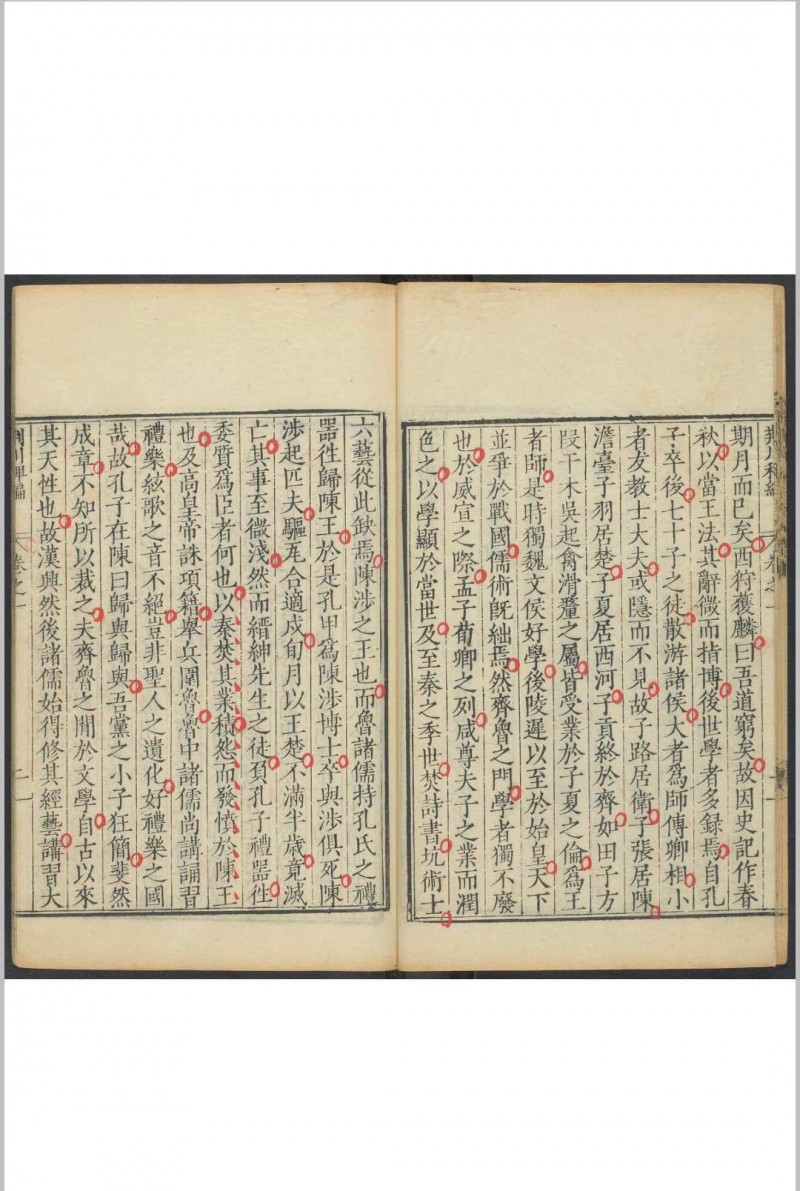 荆川稗編 卷之一 一
期月而已矣西狩獲麟曰吾道窮矣故因史記作春
秋以當王法其辭微而指博後世學者多録焉自孔
子卒後七十子之徒散游諸侯大者爲師傅卿相小
者友教士大夫或隱而不見故子路居衛子張居陳
澹臺子羽居楚子夏居西河子貢終於齊如田子方
段干木吳起禽滑釐之屬皆受業於子夏之倫爲王
者師是時獨魏文侯好學後陵遲以至於始皇天下
並爭於戰國儒術旣絀焉然齊魯之門學者獨不廢
也於威宣之際孟子荀卿之列咸尊夫子之業而潤
色之以學顯於當世及至秦之季世焚詩書坑術士
六藝從此缺焉陳涉之王也而魯諸儒持孔氏之禮
器徃歸陳王於是孔甲爲陳涉博士卒與涉俱死陳
涉起匹夫驅瓦合適戍旬月以王楚不滿半歲竟滅
亡其事至微淺然而縉紳先生之徒負孔子禮器徃
委質爲臣者何也以秦焚其業積怨而發憤於陳王
也及高皇帝誅項籍舉兵圍魯魯中諸儒尚講誦習
禮樂絃歌之音不絕豈非聖人之遺化好禮樂之國
哉故孔子在陳曰歸與歸與吾黨之小子狂簡斐然
成章不知所以裁之夫齊魯之閒於文學自古以來
其天性也故漢興然後諸儒始得修其經藝講習大
荆川稗編 卷之一 二